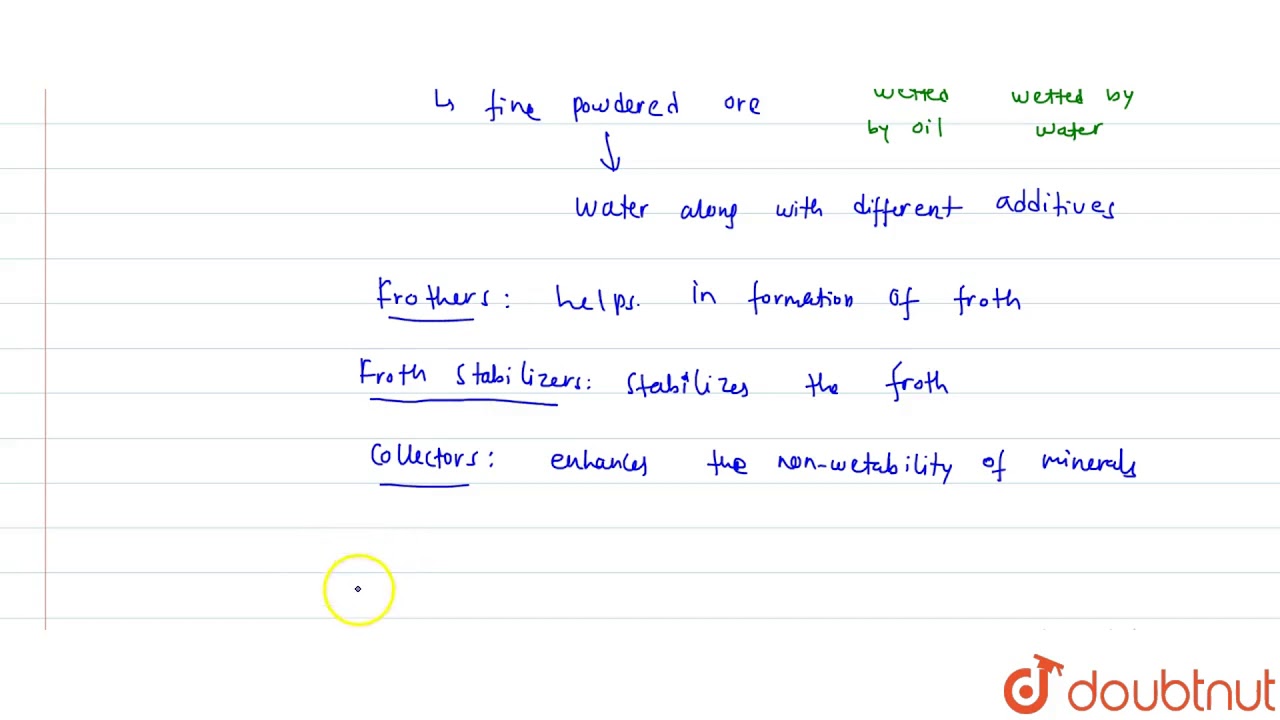 ↳ fine powdered ore
wetted wetted by
by oil water
↓
water along with different additives
Frothers: helps. in formation of froth
Froth stabilizers: stabilizes the froth
Collectors: enhances the non-wetability of minerals
doubtnut